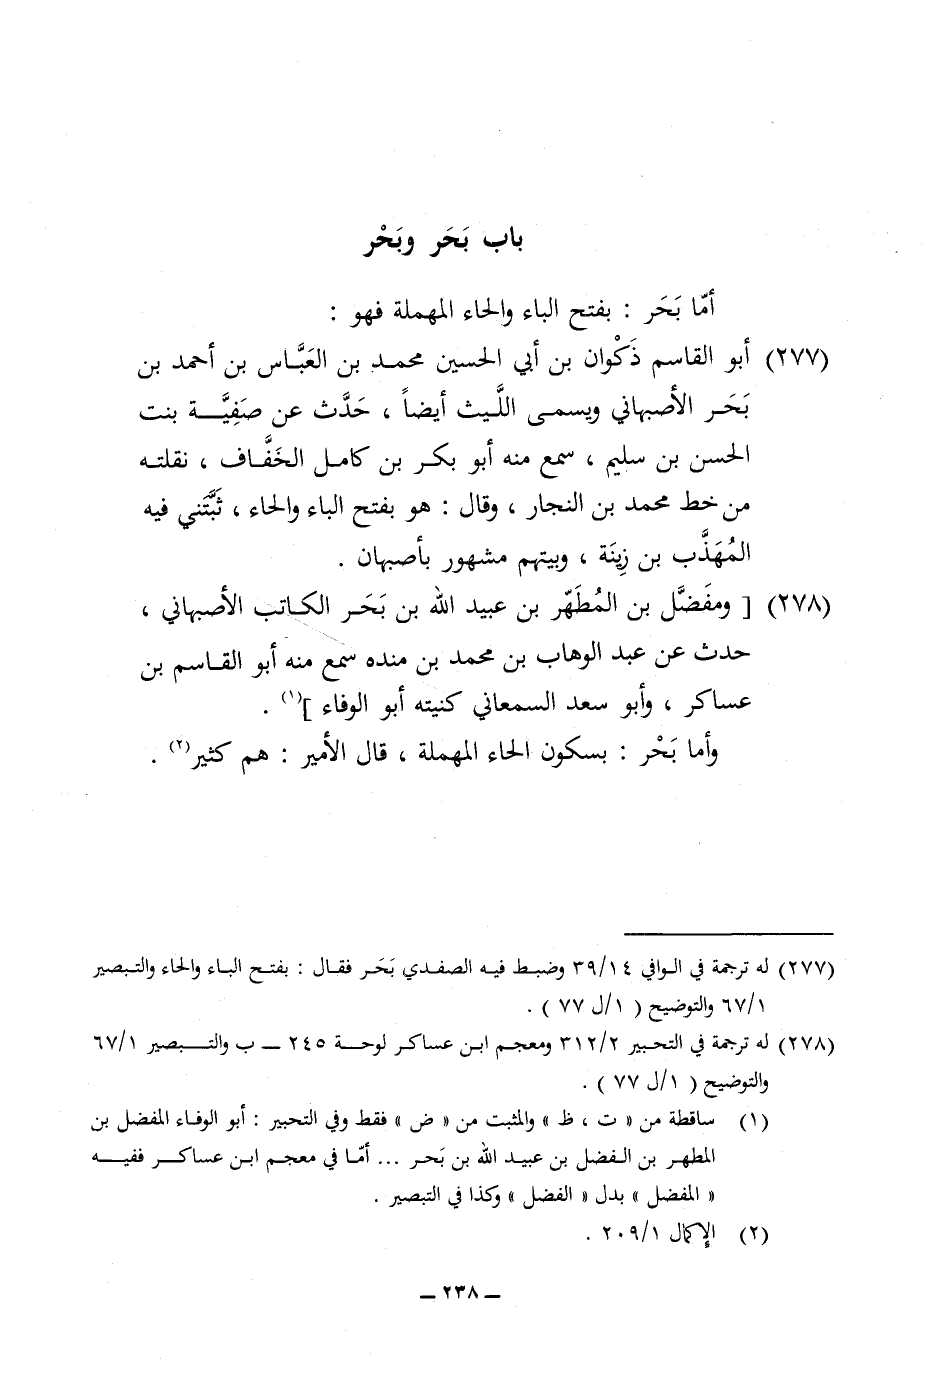 باب بَحَر وبَحْر
أمّا بَحَر : بفتح الباء والحاء المهملة فهو :
(٢٧٧) أبو القاسم ذَكْوان بن أبي الحسين محمد بن العَبَّاس بن أحمد بن
بَحَر الأصبهاني ويسمى اللَّيث أيضاً ، حَدَّث عن صَفِيَّة بنت
الحسن بن سليم ، سمع منه أبو بكر بن كامل الخَفَّاف ، نقلته
من خط محمد بن النجار ، وقال : هو بفتح الباء والحاء ، ثَبَّتَني فيه
المُهَذَّب بن زِينَة ، وبيتهم مشهور بأصبهان .
(٢٧٨) [ ومفَضَّل بن المُطَهّر بن عبيد الله بن بَحَر الكاتب الأصبهاني ،
حدث عن عبد الوهاب بن محمد بن منده سمع منه أبو القاسم بن
عساكر ، وأبو سعد السمعاني كنيته أبو الوفاء ](١) .
وأما بَحْر : بسكون الحاء المهملة ، قال الأمير : هم كثير(٢) .
(٢٧٧) له ترجمة في الوافي ٣٩/١٤ وضبط فيه الصفدي بَحَر فقال : بفتح الباء والحاء والتبصير
٦٧/١ والتوضيح ( ١/ل ٧٧ ) .
(٢٧٨) له ترجمة في التحبير ٣١٢/٢ ومعجم ابن عساكر لوحة ٢٤٥ ــ ب والتبصير ٦٧/١
والتوضيح ( ١/ل ٧٧ ) .
(١) ساقطة من « ت ، ظ » والمثبت من « ض » فقط وفي التحبير : أبو الوفاء المفضل بن
المطهر بن الفضل بن عبيد الله بن بَحر ... أمّا في معجم ابن عساكر ففيه
« المفضل » بدل « الفضل » وكذا في التبصير .
(٢) الإكمال ٢٠٩/١ .
ــ ٢٣٨ ــ